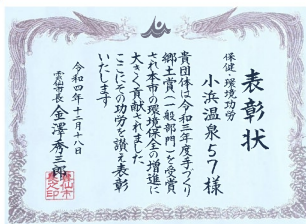 表彰状
保健・環境功労
小浜温泉57様
貴団体は令和三年度手づくり
郷土賞(一般部門)を受賞
され本市の環境保全の増進に
大きく貢献されました
ここにその功労を讃え表彰
いたします
令和四年十二月十八日
雲仙市長 金澤秀三郎